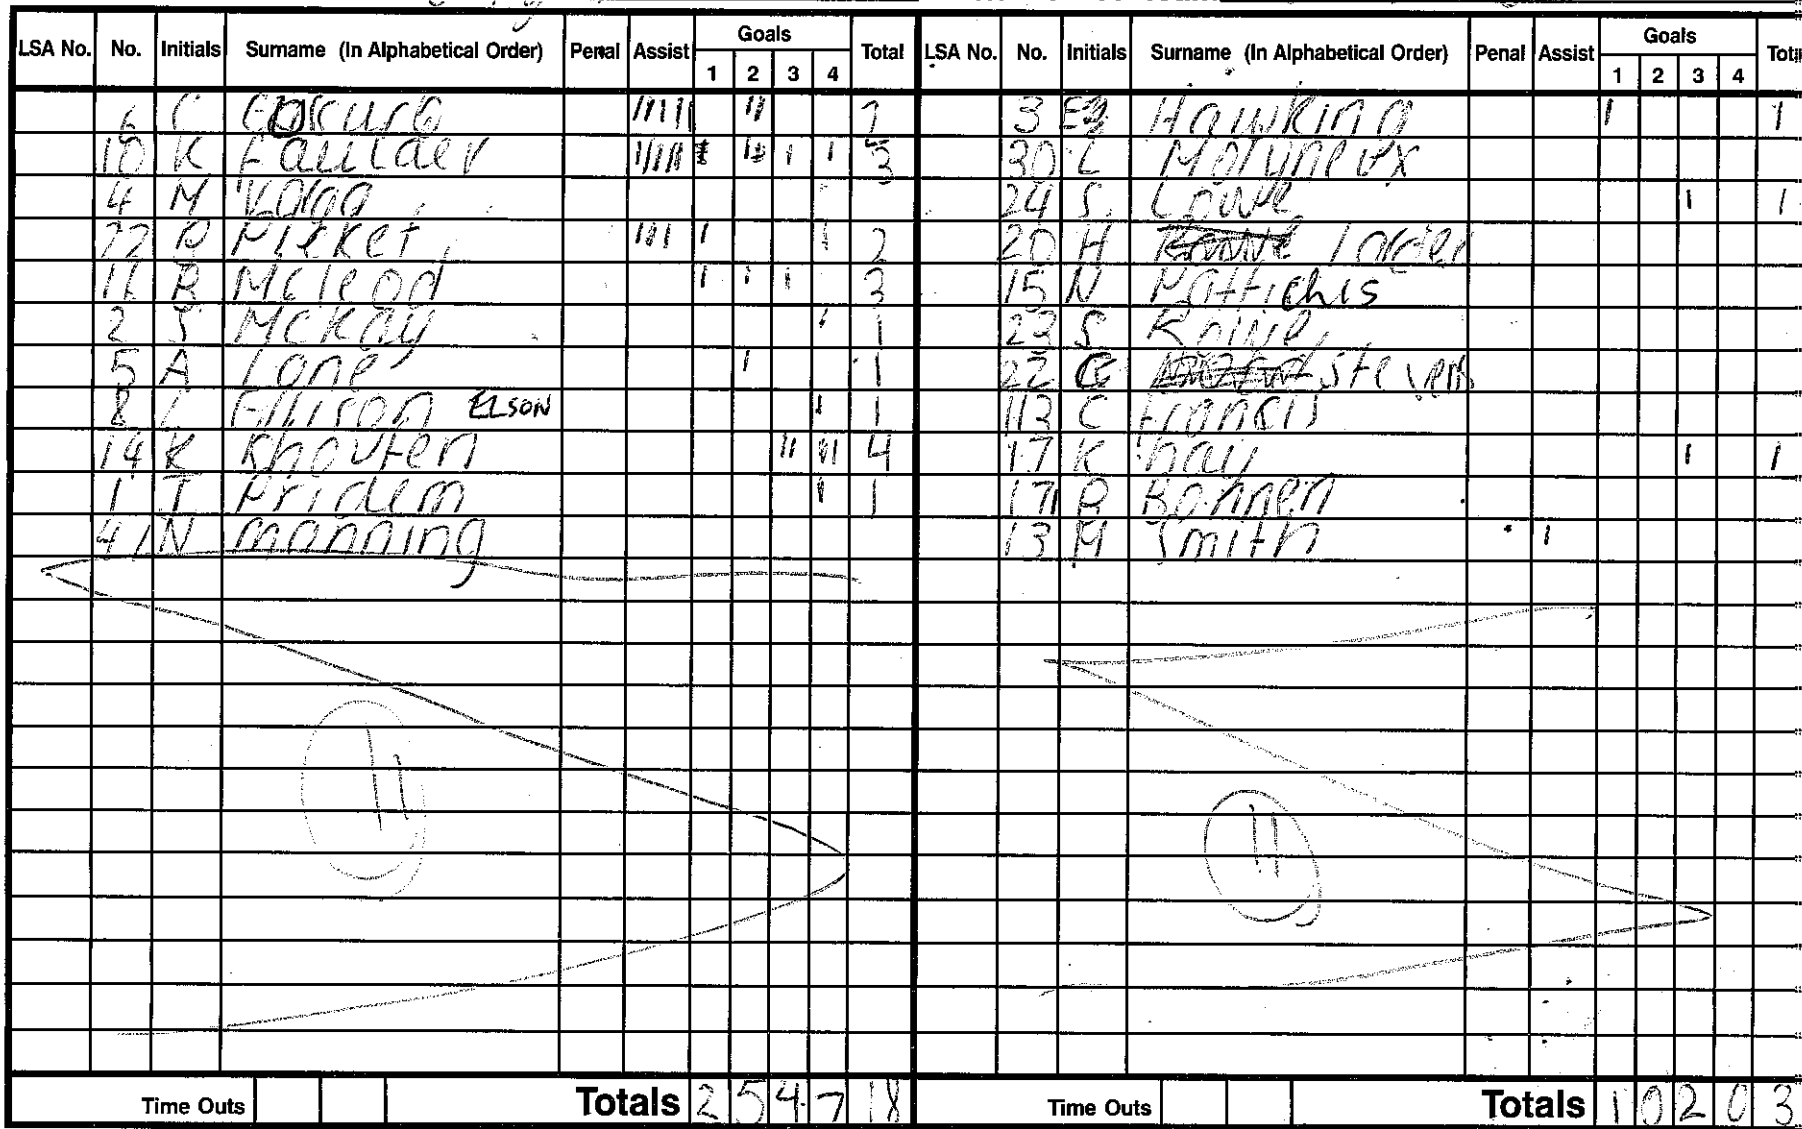 LSA No. No. Initials Surname (In Alphabetical Order) Penal Assist Goals 1 2 3 4 Total
6 C IIIII II 2
10 K Faulder IIIII I I 3
4 M
22 P Picket IIII I I 2
11 B Mcleod I I I 3
2 S McKay I 1
5 A Lone I 1
8 L Ellison ELSON I 1
14 K Khouten II II 4
1 T Pridem I 1
41 N manning
11
Time Outs Totals 2 5 4 7 18
LSA No. No. Initials Surname (In Alphabetical Order) Penal Assist Goals 1 2 3 4
3 Hawking I 1
30 L Molyneux
24 S Lowe I 1
20 H
15 N Pattichis
23 S
22 C Stevens
113 C Francis
17 K hay I 1
17 B Bohnen
13 M Smith I
11
Time Outs Totals 1 0 2 0 3